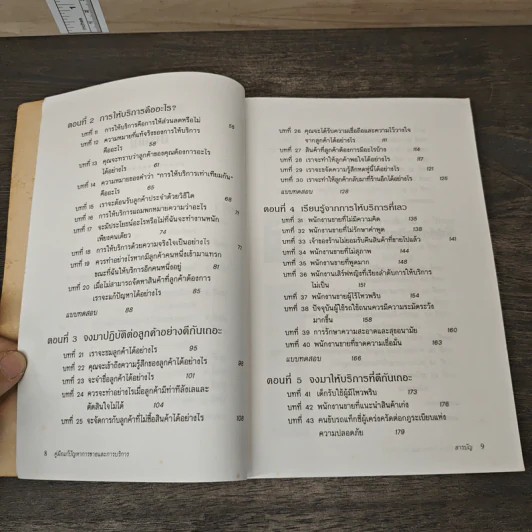 ตอนที่ 2 การให้บริการคืออะไร?
บทที่ 11 การให้บริการคือการให้ส่วนลดหรือไม่
บทที่ 12 ความหมายที่แท้จริงของการให้บริการ
คืออะไร 58
บทที่ 13 คุณจะทราบว่าลูกค้าของคุณต้องการอะไร
ได้อย่างไร 61
บทที่ 14 ความหมายของคำว่า "การให้บริการเท่าเทียมกัน"
คืออะไร 65
บทที่ 15 เราจะต้อนรับลูกค้าประจำด้วยวิธีใด 68
บทที่ 16 การให้บริการแผนกหมายความว่าอะไร 71
บทที่ 17 จะมีประโยชน์อะไรหรือไม่ที่ฉันจะทำงานหนัก
เพียงคนเดียว 74
บทที่ 18 การให้บริการด้วยความจริงใจเป็นอย่างไร
บทที่ 19 ควรทำอย่างไรหากมีลูกค้าคนหนึ่งเข้ามาแทรก
ขณะที่ฉันให้บริการอีกคนหนึ่งอยู่ 81
บทที่ 20 เมื่อไม่สามารถจัดหาสินค้าที่ลูกค้าต้องการ
เราจะแก้ปัญหาได้อย่างไร 85
แบบทดสอบ 88
ตอนที่ 3 จงมาปฏิบัติต่อลูกค้าอย่างดีกันเถอะ
บทที่ 21 เราจะชมลูกค้าได้อย่างไร 95
บทที่ 22 คุณจะเข้าถึงความรู้สึกของลูกค้าได้อย่างไร 98
บทที่ 23 จะจำชื่อลูกค้าได้อย่างไร 101
บทที่ 24 ควรจะทำอย่างไรเมื่อลูกค้ามีท่าทีลังเลและ
ตัดสินใจไม่ได้ 104
บทที่ 25 จะจัดการกับลูกค้าที่ไม่ซื้อสินค้าได้อย่างไร 108
8 คู่มือแก้ปัญหาการขายและการบริการ
บทที่ 26 คุณจะได้รับความเชื่อถือและความไว้วางใจ
จากลูกค้าได้อย่างไร 111
บทที่ 27 สินค้าที่ลูกค้าต้องการมีอะไรบ้าง
บทที่ 28 เราจะทำให้ลูกค้าพอใจได้อย่างไร
บทที่ 29 เราจะขจัดความรู้สึกหดหู่นี้ได้อย่างไร 121
บทที่ 30 เราจะทำให้ลูกค้ากลับมาที่ร้านอีกได้อย่างไร 125
แบบทดสอบ 128
ตอนที่ 4 เรียนรู้จากการให้บริการที่เลว
บทที่ 31 พนักงานขายที่ไม่มีความคิด 135
บทที่ 32 พนักงานขายที่ไม่รักษาคำพูด 138
บทที่ 33 เจ้าของร้านไม่ยอมรับคืนสินค้าที่ขายไปแล้ว 141
บทที่ 34 พนักงานขายที่ไม่สุภาพ 144
บทที่ 35 พนักงานขายที่พูดมาก 148
บทที่ 36 พนักงานเสิร์ฟหญิงที่เรียงลำดับการให้บริการ
ไม่เป็น 151
บทที่ 37 พนักงานขายผู้ไร้ไหวพริบ 154
บทที่ 38 ปัจจุบันผู้ใช้รถใช้ถนนควรมีความระมัดระวัง
มากขึ้น 158
บทที่ 39 การรักษาความสะอาดและสุขอนามัย 160
บทที่ 40 พนักงานขายที่ขาดความเชื่อมั่น 163
แบบทดสอบ 166
ตอนที่ 5 จงมาให้บริการที่ดีกันเถอะ
บทที่ 41 เด็กรับใช้ผู้มีไหวพริบ 173
บทที่ 42 พนักงานขายที่แนะนำสินค้าเก่ง 176
บทที่ 43 คนขับรถแท็กซี่ผู้เคร่งครัดต่อกฎระเบียบแห่ง
ความปลอดภัย 179
สารบัญ 9